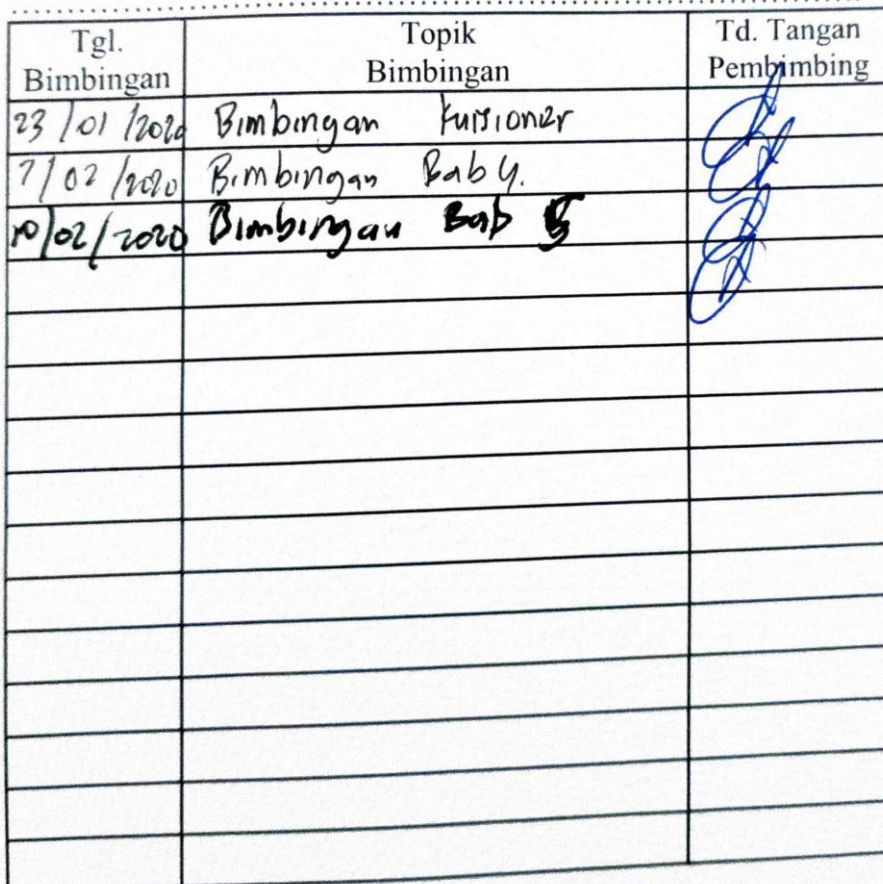 Tgl. Bimbingan Topik Bimbingan Td. Tangan Pembimbing
23/01/2020 Bimbingan Kuisioner
7/02/2020 Bimbingan Bab 4.
10/02/2020 Bimbingan Bab 5